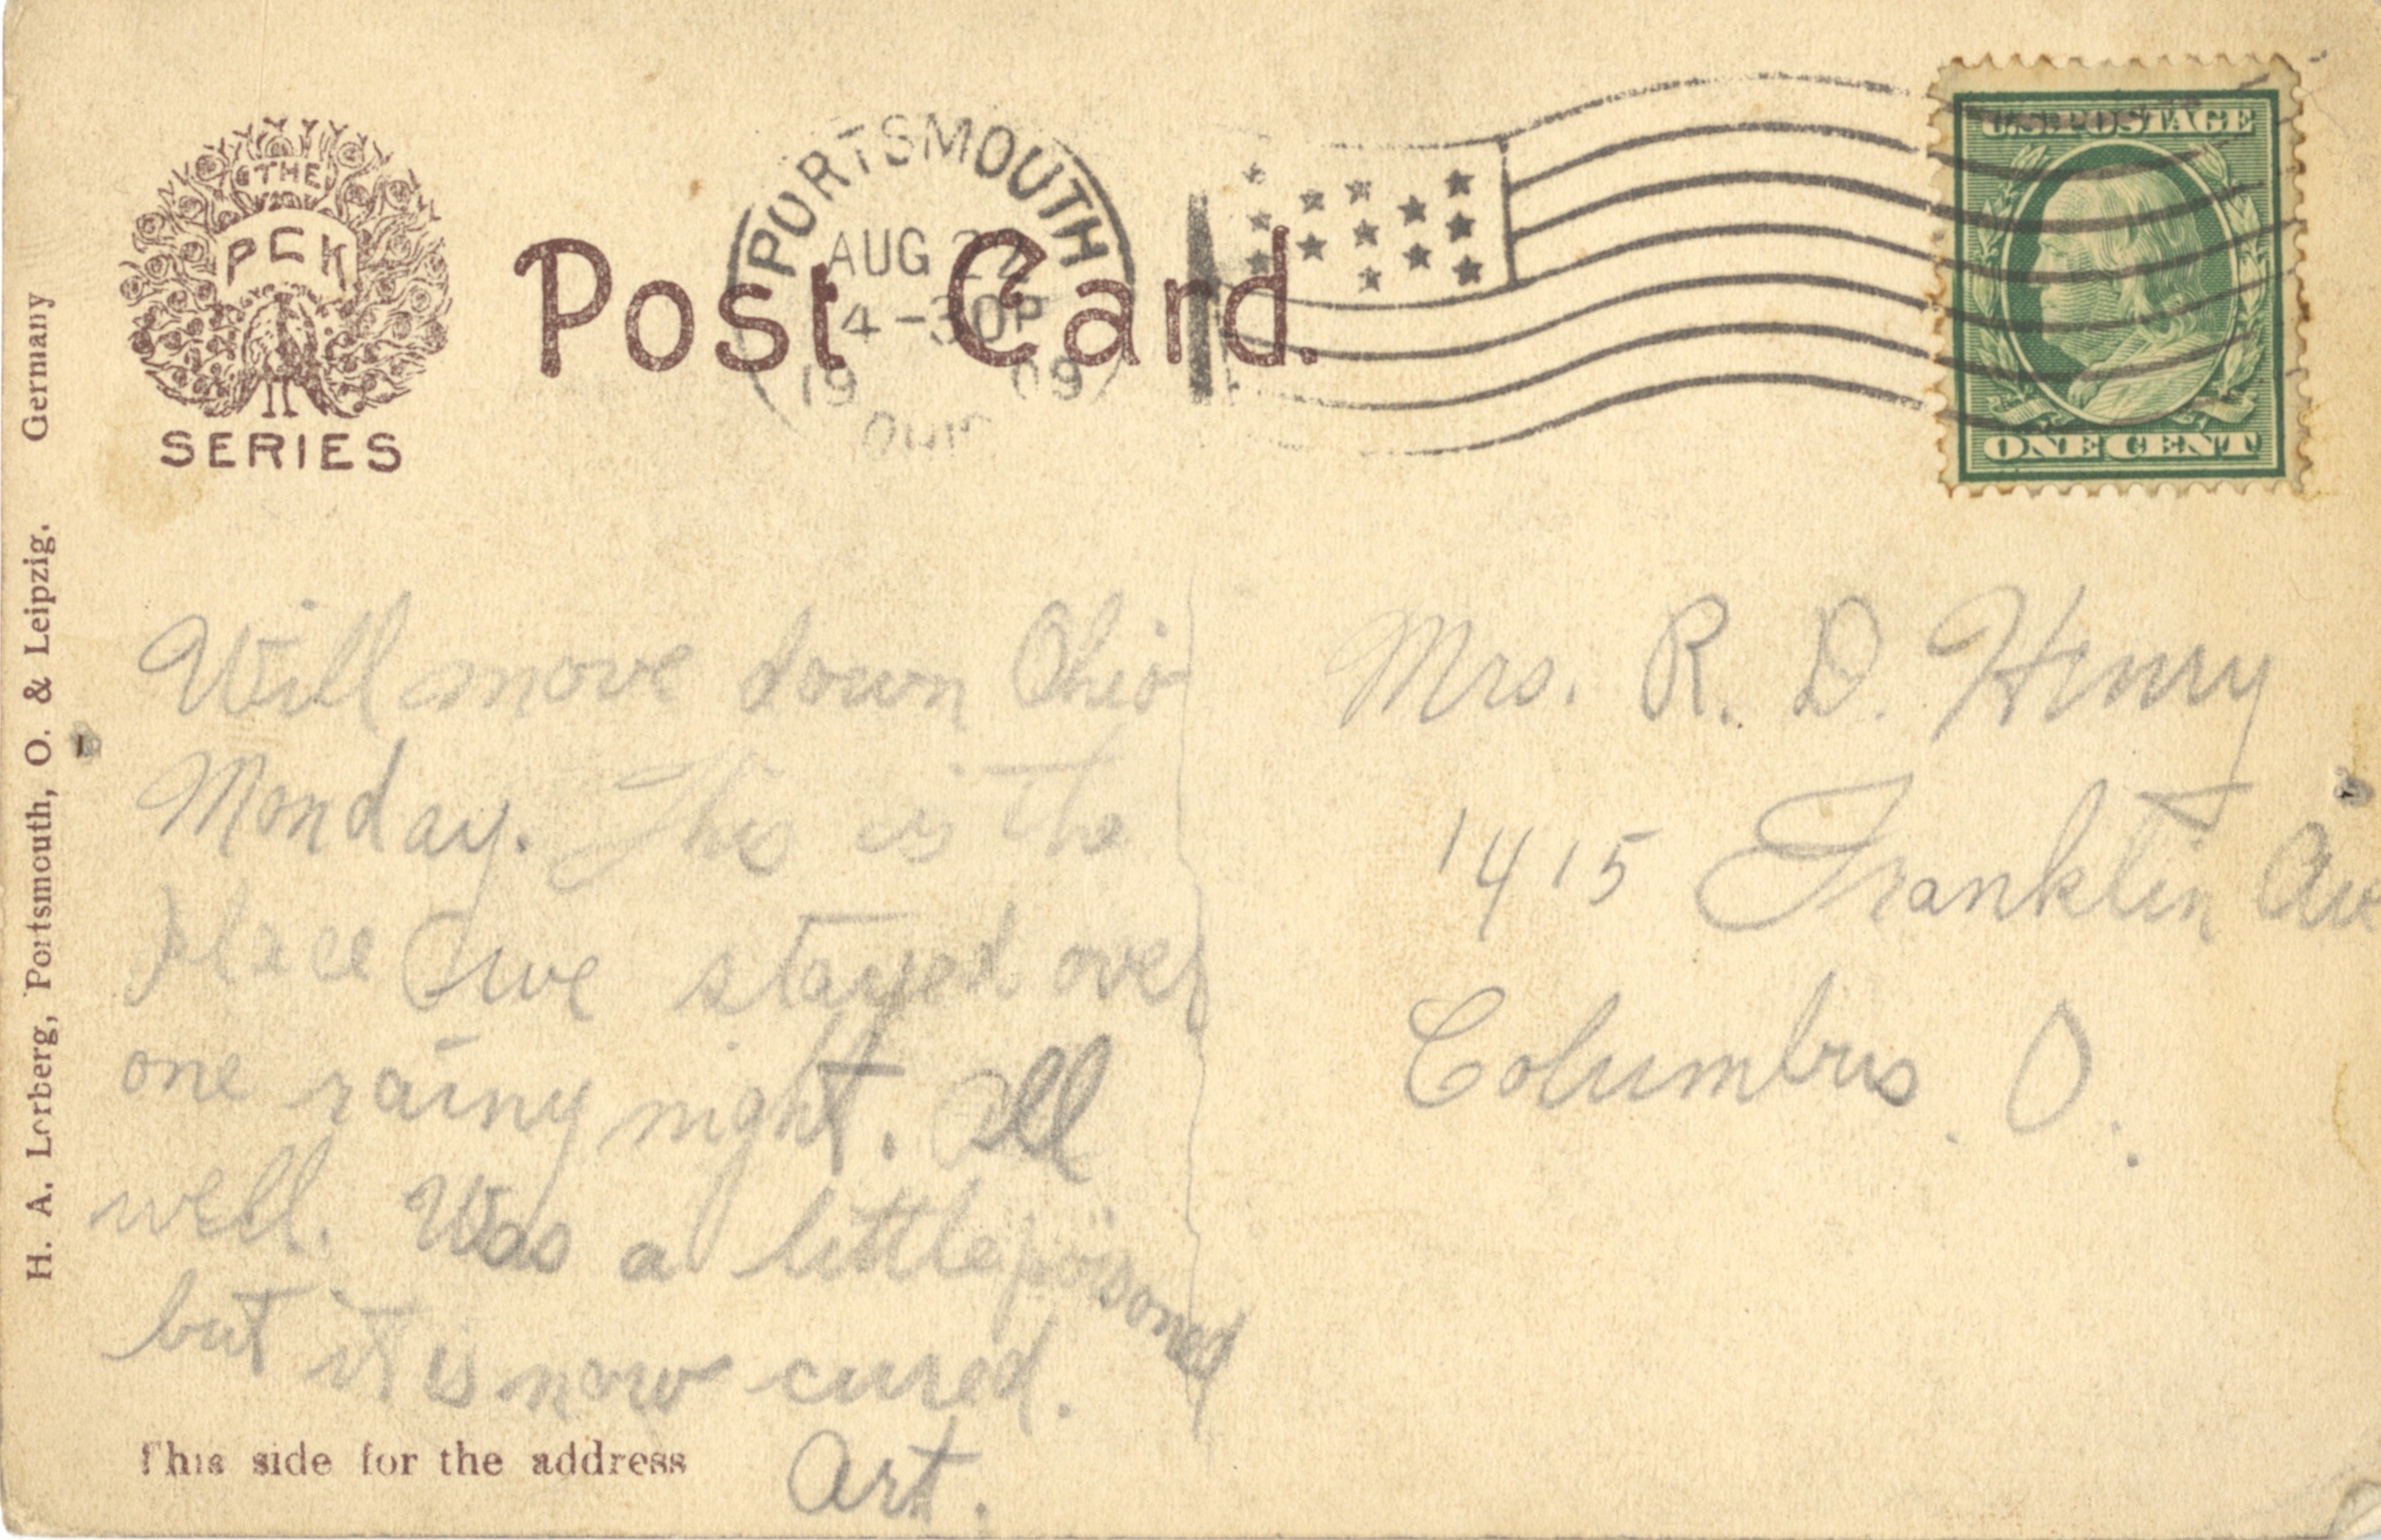 THE
PCK
SERIES
Post Card.
PORTSMOUTH
AUG
4-30P
19 09
OHIO
U.S. POSTAGE
ONE CENT
H. A. Lorberg, Portsmouth, O. & Leipzig. Germany
Will move down Ohio
Monday. This is the
place we stayed over
one rainy night. All
well. Was a little poisoned
but it is now cured.
Art.
This side for the address
Mrs. R. D. Henry
1415 Franklin Ave
Columbus. O.